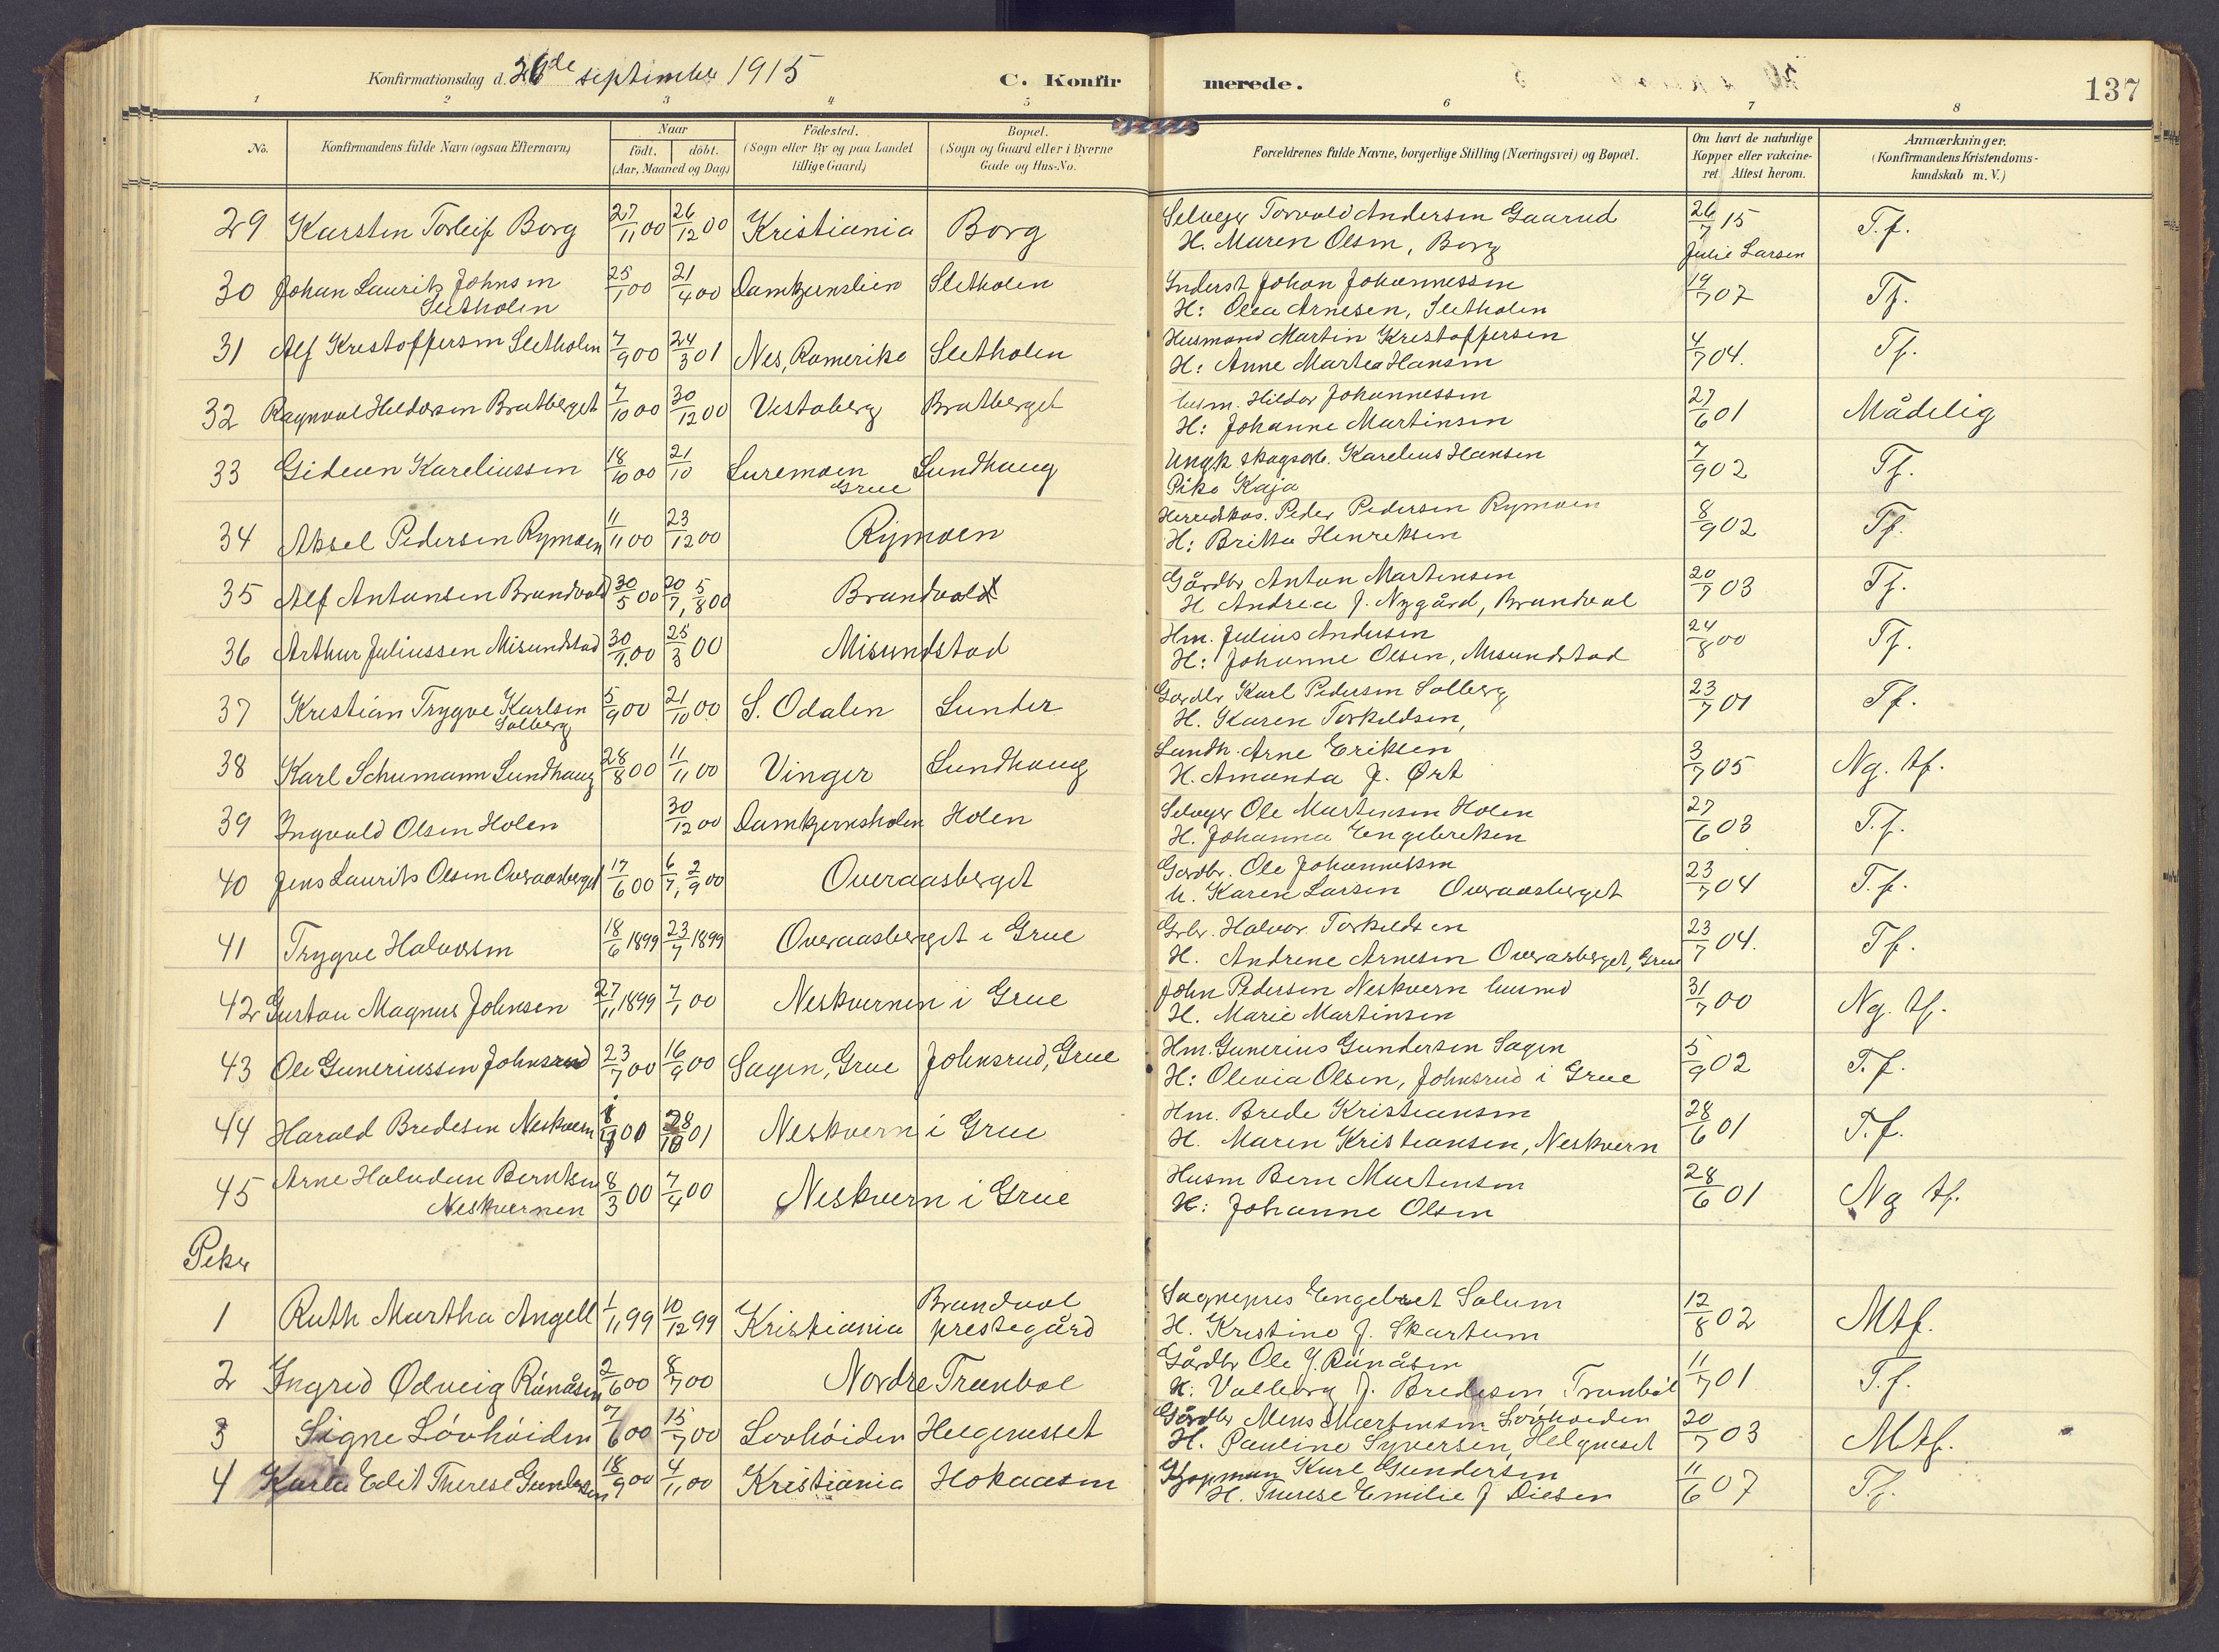 Konfirmationsdag d. 26de september 1915
C. Konfir
merede.
137
1 2 3 4 5 6 7 8
No.
Konfirmandens fulde Navn (ogsaa Efternavn)
Naar
født. døbt.
(Aar, Maaned og Dag)
Fødested.
(Sogn eller By og paa Landet
tillige Gaard)
Bopæl.
(Sogn og Gaard eller i Byerne
Gade og Hus-No.
Forældrenes fulde Navne, borgerlige Stilling (Næringsvei) og Bopæl.
Om havt de naturlige
Kopper eller vakcine-
ret. Attest herom.
Anmærkninger.
(Konfirmandens Kristendoms-
kundskab m. V.)
29 Karsten Torleif Borg 27/11 00 26/12 00 Kristiania Borg Selveger Torvald Andersen Gaarud 26/7 15 T.f.
H. Maren Olsen, Borg Julie Larsen
30 Johan Laurits Johnsen 25/1 00 21/4 00 Damkjernslien Sletholen Inderst Johan Johannessen 19/7 07 Tf.
Sletholen H: Olea Arnesen, Sletholen
31 Alf Kristoffersen Sletholen 7/9 00 24/3 01 Nes, Romerike Sletholen Husmand Martin Kristoffersen 4/7 04. Tf.
H: Anne Martea Hansen
32 Ragnval Hildorsen Bratberget 7/10 00 30/12 00 Vestaberg Bratberget husm. Hildor Johannessen 27/6 01 Mådelig
H: Johanne Martinsen
33 Gideon Kareliussen 18/10 00 21/10 Luremoen Lundhaug Ungk skogsarb. Karelius Hansen 7/9 02 Tf.
Grue Pike Kaja
34 Aksel Pedersen Rymoen 11/11 00 23/12 00 Rymoen Herredskas. Peder Pedersen Rymoen 8/9 02 Tf.
H: Britha Henriksen
35 Alf Antonsen Brandvold 30/5 00 20/7, 5/8 00 Brandval Gårdbr Anton Martinsen 20/7 03 Tf.
H Andrea J. Nygård, Brandval
36 Arthur Juliussen Misundstad 30/1 00 25/3 00 Misundstad Hm. Julius Andersen 24/8 00 Tf.
H: Johanne Olsen, Misundstad
37 Kristian Trygve Karlsen 5/9 00 21/10 00 S. Odalen Lunder Gardbr Karl Pedersen Solberg 23/7 01 Tf.
Solberg H. Karen Torkildsen,
38 Karl Schumann Lundhaug 28/8 00 11/11 00 Vinger Lundhaug Landh. Arne Eriksen 3/7 05 Ng. tf.
H. Amanda J. Ørt
39 Ingvald Olsen Holen 30/12 00 Damkjernsholen Holen Selveger Ole Martinsen Holen 27/6 03 T.f.
H. Johanna Engebretsen
40 Jens Laurits Olsen Overaasberget 17/6 00 6/7, 2/9 00 Overaasberget Gardbr. Ole Johannessen 23/7 04 T.f.
h. Karen Larsen Overaasberget
41 Trygve Halvorsen 18/6 1899 23/7 1899 Overaasberget i Grue Grbr. Halvor Torkildsen 23/7 04. Tf.
H. Andrine Arnesen Overaasberget, Grue
42 Gustav Magnus Johnsen 27/11 1899 7/1 00 Neskvernen i Grue John Pedersen Neskvern husmd 31/7 00 Ng. tf.
H. Marie Martinsen
43 Ole Guneriussen Johnsrud 23/7 00 16/9 00 Sagen, Grue Johnsrud, Grue Hm. Gunerius Gundersen Sagen 5/9 02 T.f.
H: Olivia Olsen, Johnsrud i Grue
44 Harald Bredesen Neskvern 00 28/10 01 Neskvern i Grue Hm. Brede Kristiansen 28/6 01 T.f.
H. Maren Kristiansen, Neskvern
45 Arne Halvdan Berntsen 8/3 00 7/4 00 Neskvern i Grue Husm Bern Martinsen 28/6 01 Ng tf.
Neskvernen H: Johanne Olsen
Piker
1 Ruth Martha Angell 1/11 99 10/12 99 Kristiania Brandval Sognepres Engebret Solum 12/8 02 Mtf.
prestegård H. Kristine J. Skartum
2 Ingrid Ødveig Rúnåsen 2/6 00 8/7 00 Nordre Tranbøl Gårdbr Ole J. Rúnåsen 11/7 01 T.f.
H. Valborg J. Bredesen Tranbøl
3 Signe Lóvhóiden 7/6 00 15/7 00 Lovhóiden Helgenesset Gårdbr Mens Martinsen Lövhoiden 20/7 03 Mtf.
H. Pauline Syversen, Helgneset
4 Karla Edit Therese Gundersen 18/9 00 4/11 00 Kristiania Hokaasen Kjøpman Karl Gundersen 11/6 07 T.f.
H. Therese Emilie J Diesen